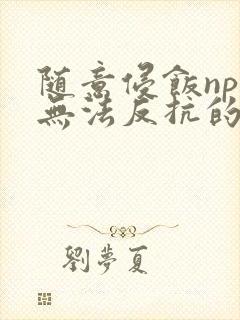 随意侵飯np
無法反抗的
劉夢夏